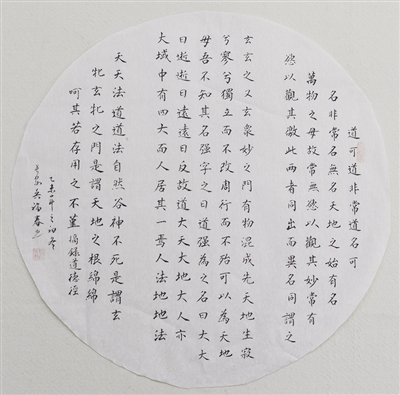 道可道非常道名可
名非常名無名天地之始有名
萬物之母故常無慾以觀其妙常有
慾以觀其徼此两者同出而異名同謂之
玄玄之又玄衆妙之門有物混成先天地生寂
兮寥兮獨立而不改周行而不殆可以為天地
母吾不知其名强字之曰道强為之名曰大大
曰逝逝曰遠遠曰反故道大天大地大人亦
大域中有四大而人居其一焉人法地地法
天天法道道法自然谷神不死是謂玄
牝玄牝之門是謂天地之根綿綿
呵其若存用之不堇摘錄道德經
乙未年之初冬
吳福春